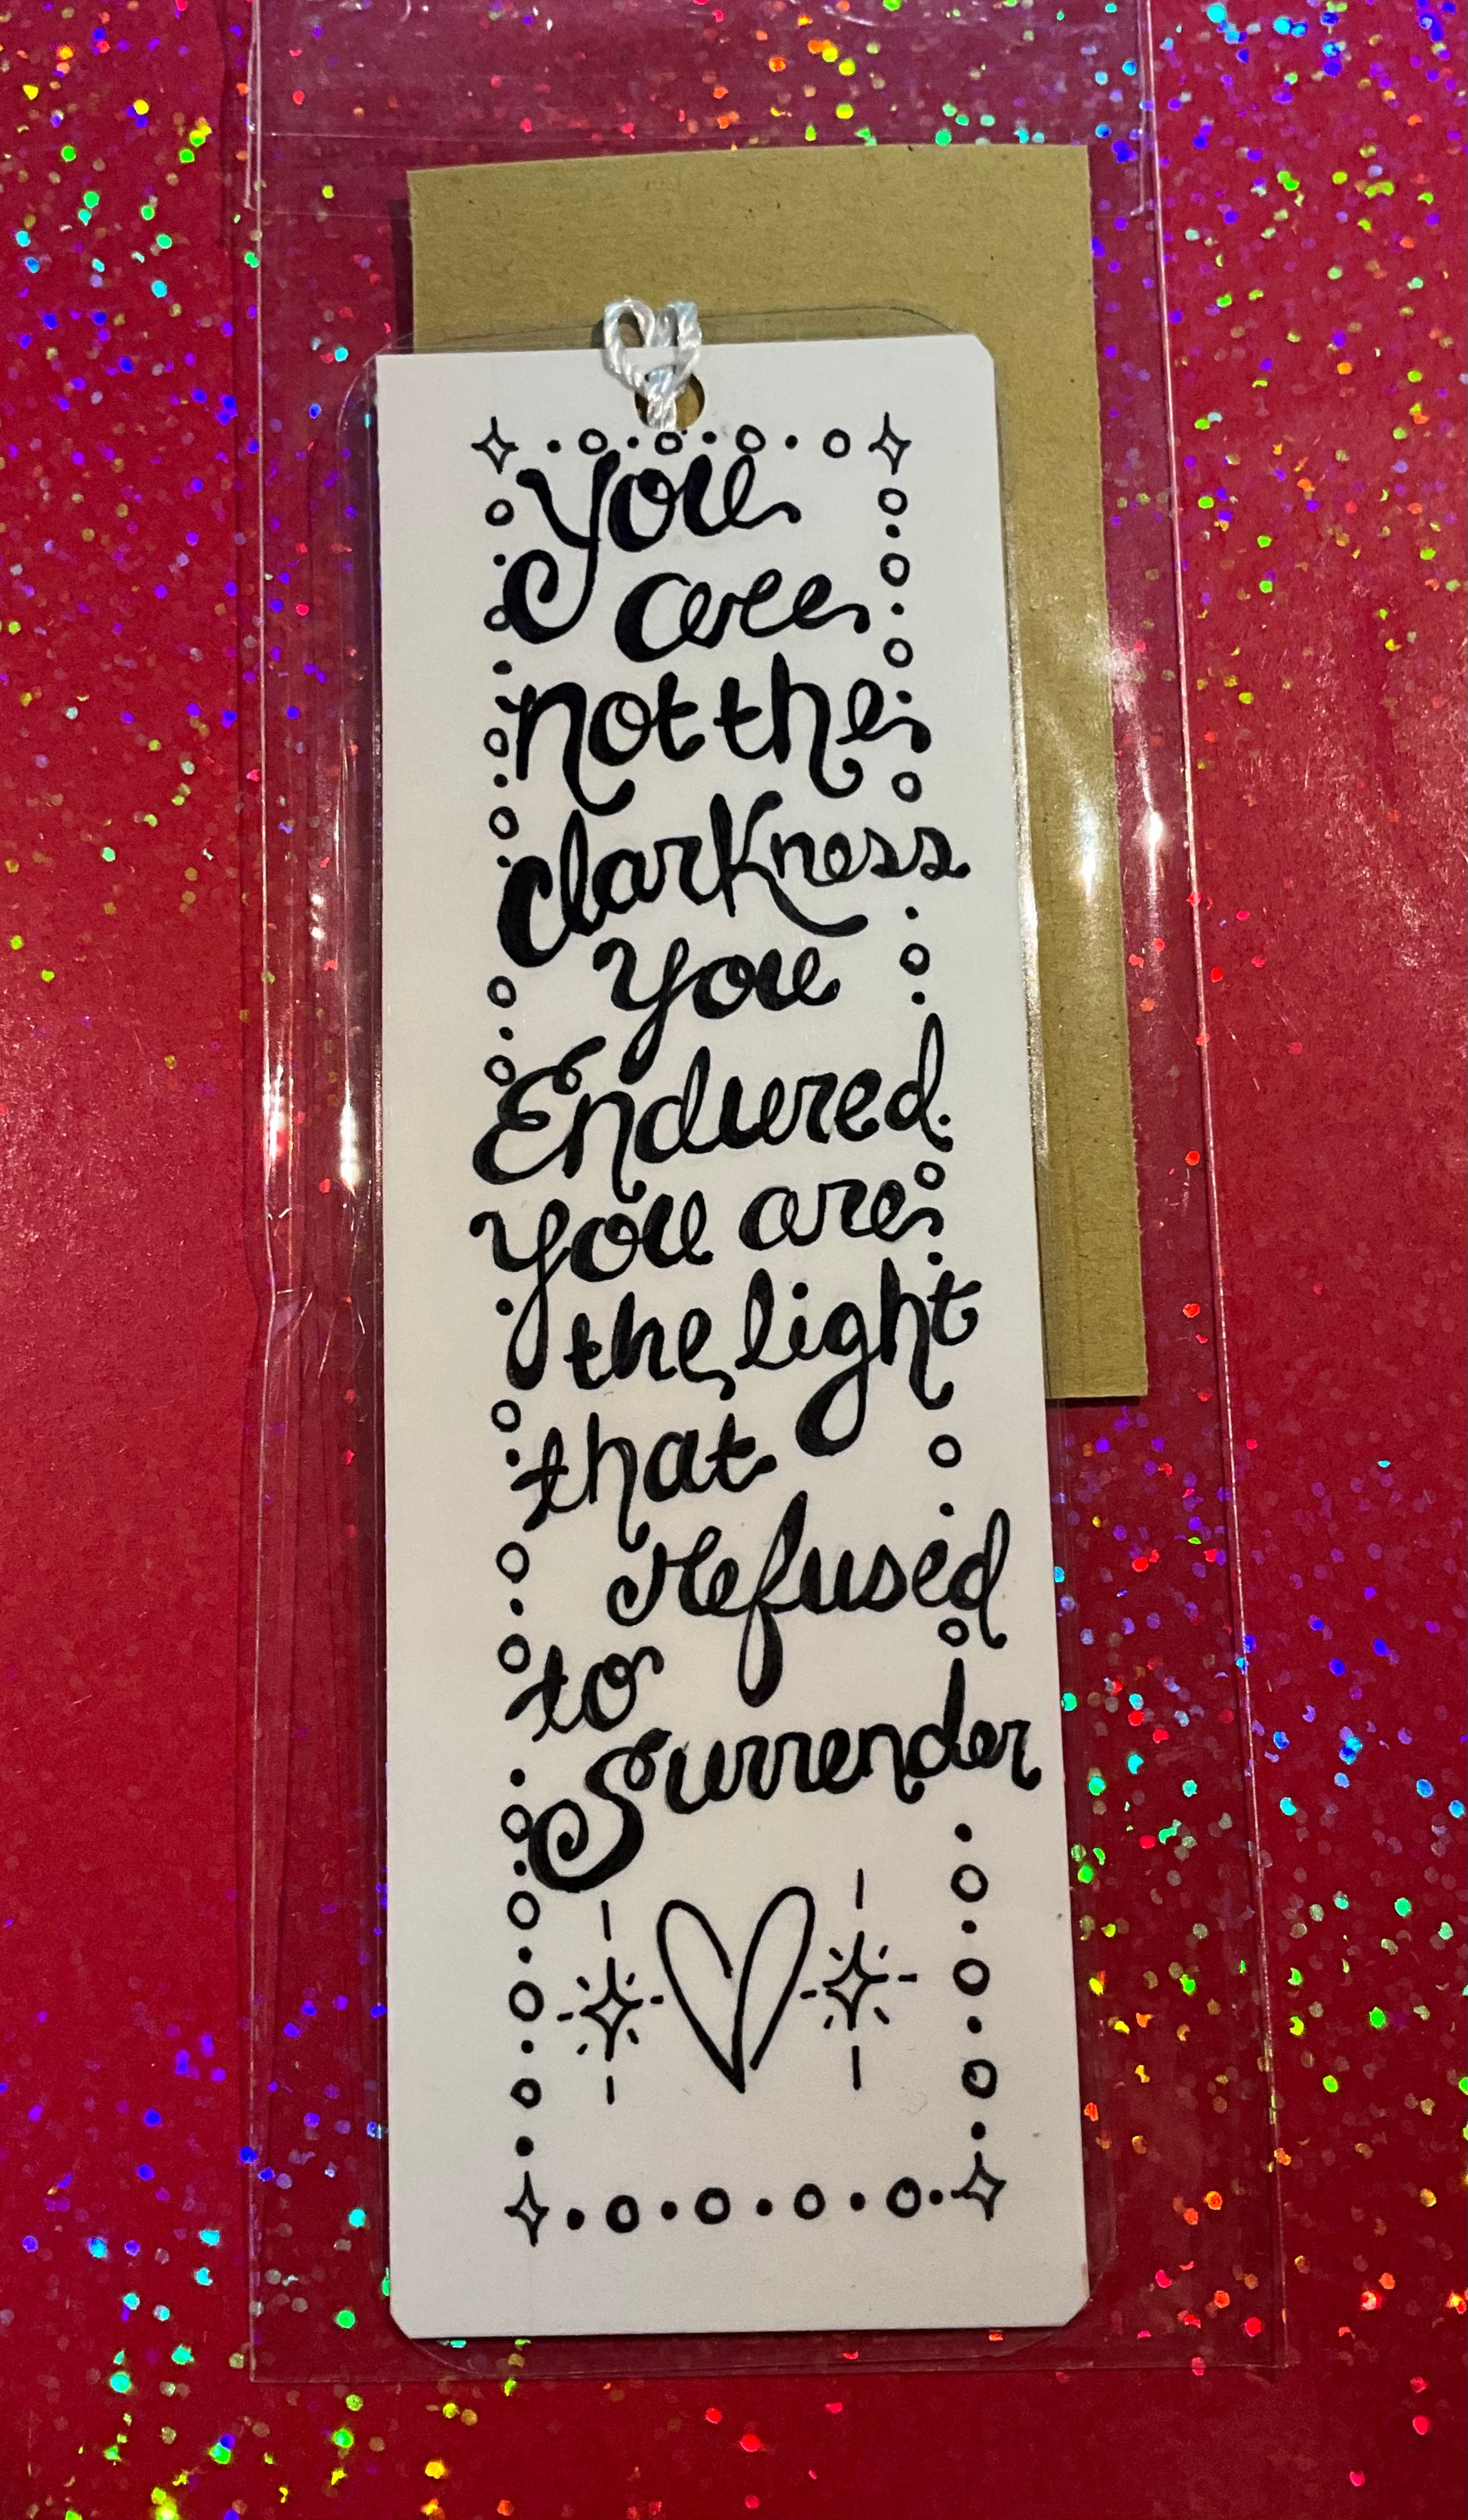 you
are
not the
darkness
you
Endured
you are
the light
that
refused
to
Surrender